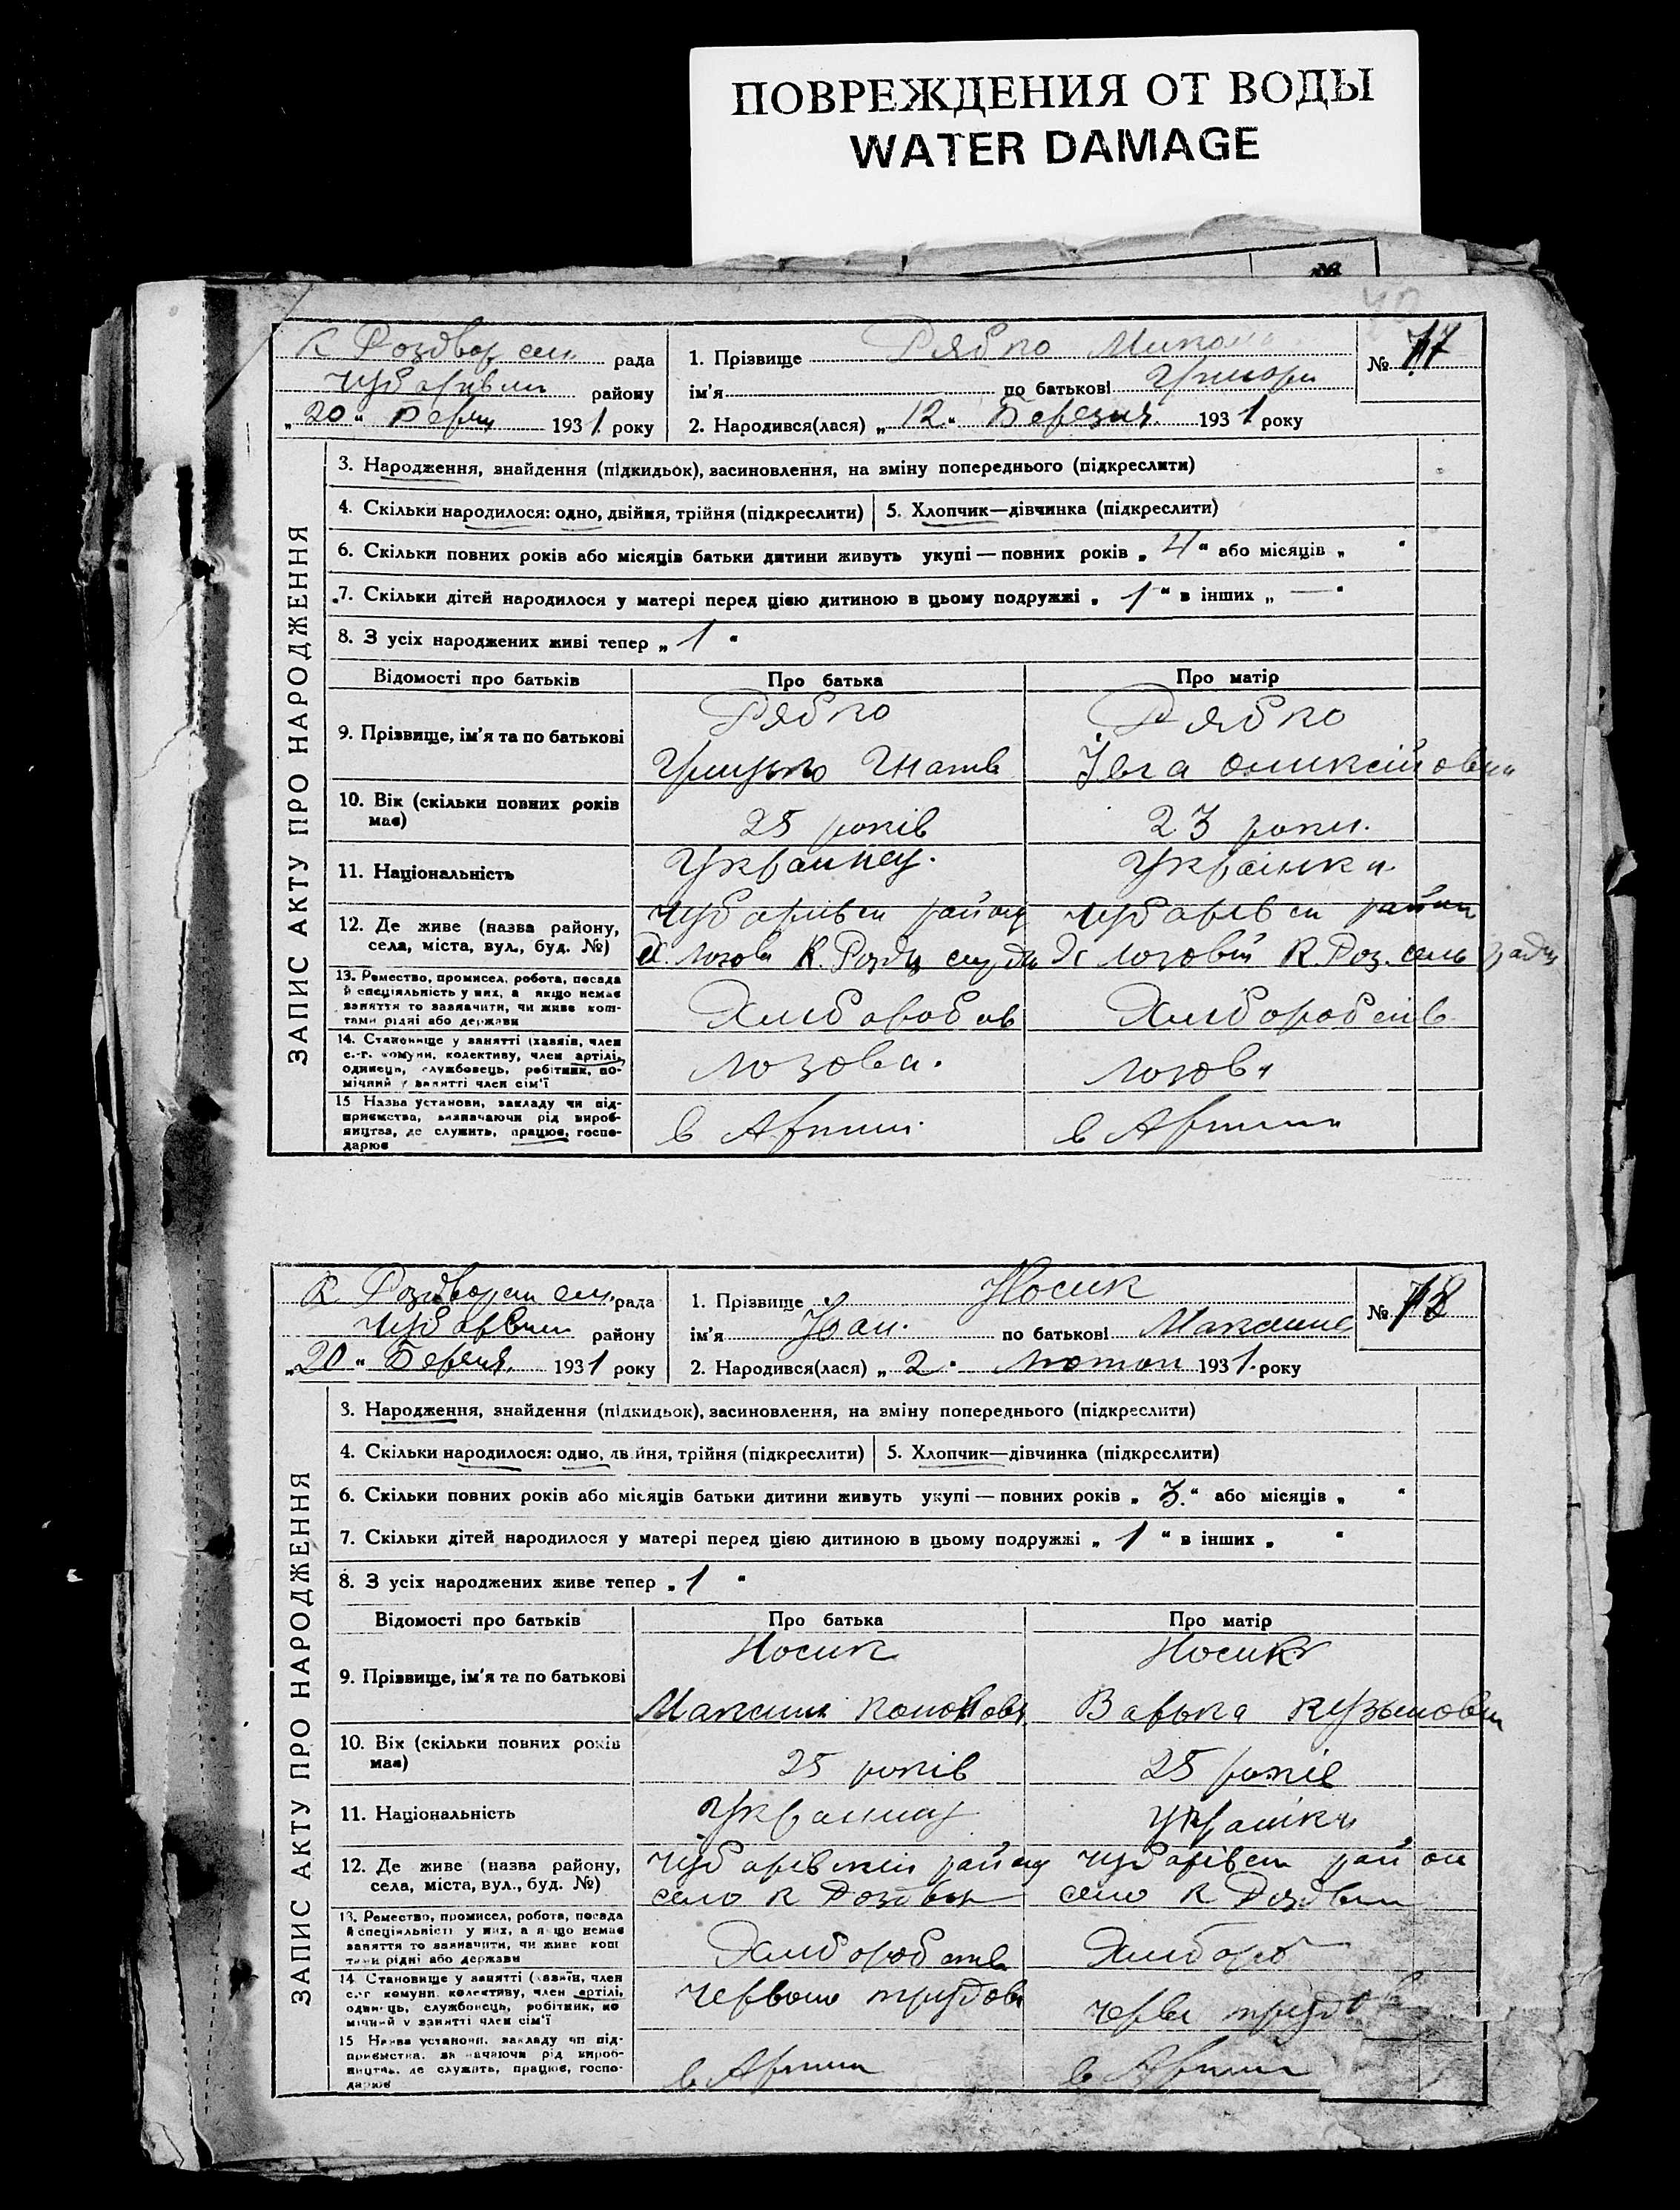 ПОВРЕЖДЕНИЯ ОТ ВОДЫ
WATER DAMAGE
ЗАПИС АКТУ ПРО НАРОДЖЕННЯ
К Роздор сел рада
Чубарівськ району
„20“ Берез 1931 року
1. Прізвище Рябко Микола
ім'я по батькові Григорі
№ 17
2. Народився(лася) „12“ Березня 1931 року
3. Народження, знайдення (підкидьок), засиновлення, на зміну попереднього (підкреслити)
4. Скільки народилося: одно, двійня, трійня (підкреслити)
5. Хлопчик—дівчинка (підкреслити)
6. Скільки повних років або місяців батьки дитини живуть укупі — повних років „4“ або місяців „ “
7. Скільки дітей народилося у матері перед цією дитиною в цьому подружжі „1“ в інших „—“
8. З усіх народжених живі тепер „1“
Відомості про батьків Про батька Про матір
9. Прізвище, ім'я та по батькові
Рябко Рябко
Грицько Гнатів Ївга Оликсійовна
10. Вік (скільки повних років має)
25 років 23 роки.
11. Національність
Украинец. Украінка
12. Де живе (назва району, села, міста, вул., буд. №)
Чубарівськ району Чубарівськ район
Х. Лозова К. Розд Х Лозовій К. Роз. сель ради
13. Ремество, промисел, робота, посада
й спеціяльність у них, а якщо немає
заняття то зазначити, чи живе кош-
тами рідні або держави
Хлиборобств Хлиборобств
14. Становище у занятті (хазяїн, член
с.-г. комуни, колективу, член артілі,
одинець, службовець, робітник, по-
мічний у занятті член сім'ї
Лозова. Лозова
15 Назва установи, закладу чи під-
приємства, зазначаючи рід вироб-
ництва, де служить, працює, госпо-
дарює
в Артили в Артили
ЗАПИС АКТУ ПРО НАРОДЖЕННЯ
К Роздорськ сел. рада
Чубарвськ району
„20“ Березня. 1931 року
1. Прізвище Носик
ім'я Іван. по батькові Максимов
№ 18
2. Народився(лася) „2“ Лютого 1931 року
3. Народження, знайдення (підкидьок), засиновлення, на зміну попереднього (підкреслити)
4. Скільки народилося: одно, двійня, трійня (підкреслити)
5. Хлопчик—дівчинка (підкреслити)
6. Скільки повних років або місяців батьки дитини живуть укупі — повних років „3.“ або місяців „ “
7. Скільки дітей народилося у матері перед цією дитиною в цьому подружжі „1“ в інших „ “
8. З усіх народжених живе тепер „1“
Відомості про батьків Про батька Про матір
9. Прізвище, ім'я та по батькові
Носик Носик
Максим Кононови Варька Кузьмовн
10. Вік (скільки повних років має)
25 років 25 років
11. Національність
Украинец Украінка
12. Де живе (назва району, села, міста, вул., буд. №)
Чубарівській району Чубарівськ район
село К Роздор село К Роздор
13. Ремество, промисел, робота, посада
й спеціяльність у них, а якщо немає
заняття то зазначити, чи живе кош
тами рідні або держави
Хлиборобств Хлибороб
14 Становище у занятті (хазяїн, член
с.-г комуни колективу, член артілі,
одинець, службовець, робітник, по
мічний у занятті член сім'ї
Червоно трудова Черв труд
15 Назва установи, закладу чи під-
приємства, зазначаючи рід вироб-
ництва, де служить, працює, госпо-
дарює
в Артили в Артили